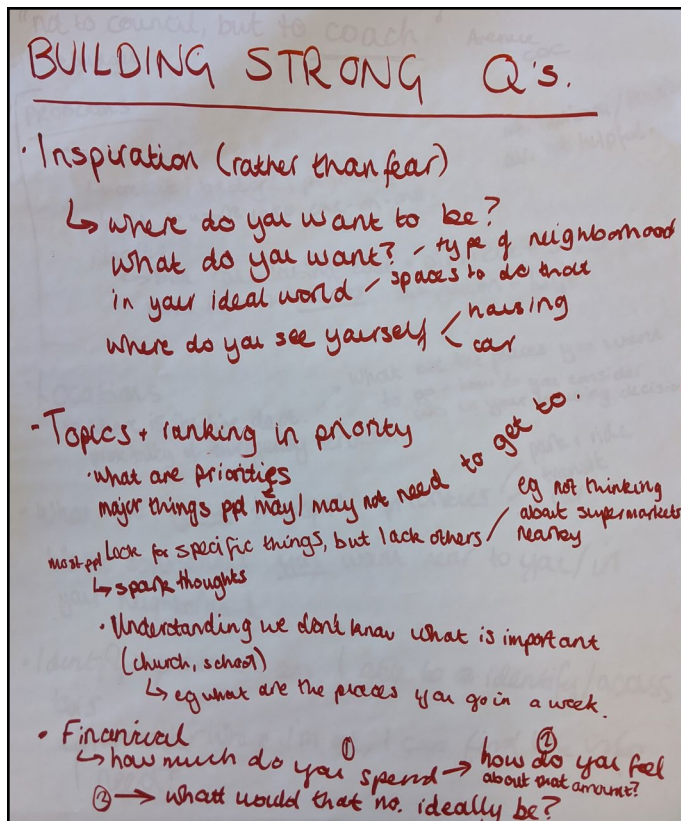 BUILDING STRONG Q's.
· Inspiration (rather than fear)
↳ where do you want to be?
What do you want? / type of neighborhood
in your ideal world / spaces to do that
where do you see yourself < housing
car
· Topics + ranking in priority
· what are priorities
major things ppl may / may not need to get to.
most ppl Look for specific things, but lack others / eg not thinking
about supermarkets
nearby
↳ spark thoughts
· Understanding we don't know what is important
(church, school)
↳ eg what are the places you go in a week.
· Financial
↳ how much do you spend ① → how do you feel ②
about that amount?
③ → what would that no. ideally be?
"not to council, but to coach"